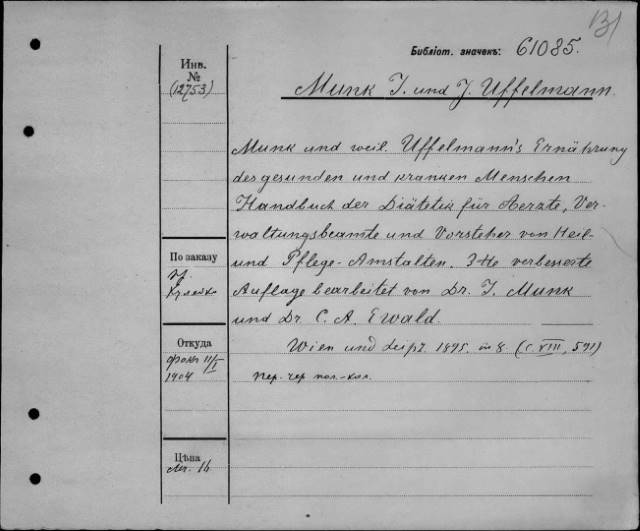 Библіот. значекъ: 61085.
Инв.
№
(12753)
Munk I. und J. Uffelmann.
Munk und weil. Uffelmann's Ernährung
des gesunden und kranken Menschen
Handbuch der Diätetik für Aerzte, Ver-
waltungsbeamte und Vorsteher von Heil-
und Pflege-Amstalten. 3-te verbesserte
Auflage bearbeitet von Dr. I. Munk
und Dr. C. A. Ewald.
Wien und Leipz. 1895. in 8. (с. VIII, 591)
пер. чер. пол.-кол.
По заказу
Откуда
11/I
1904
Цѣна
16